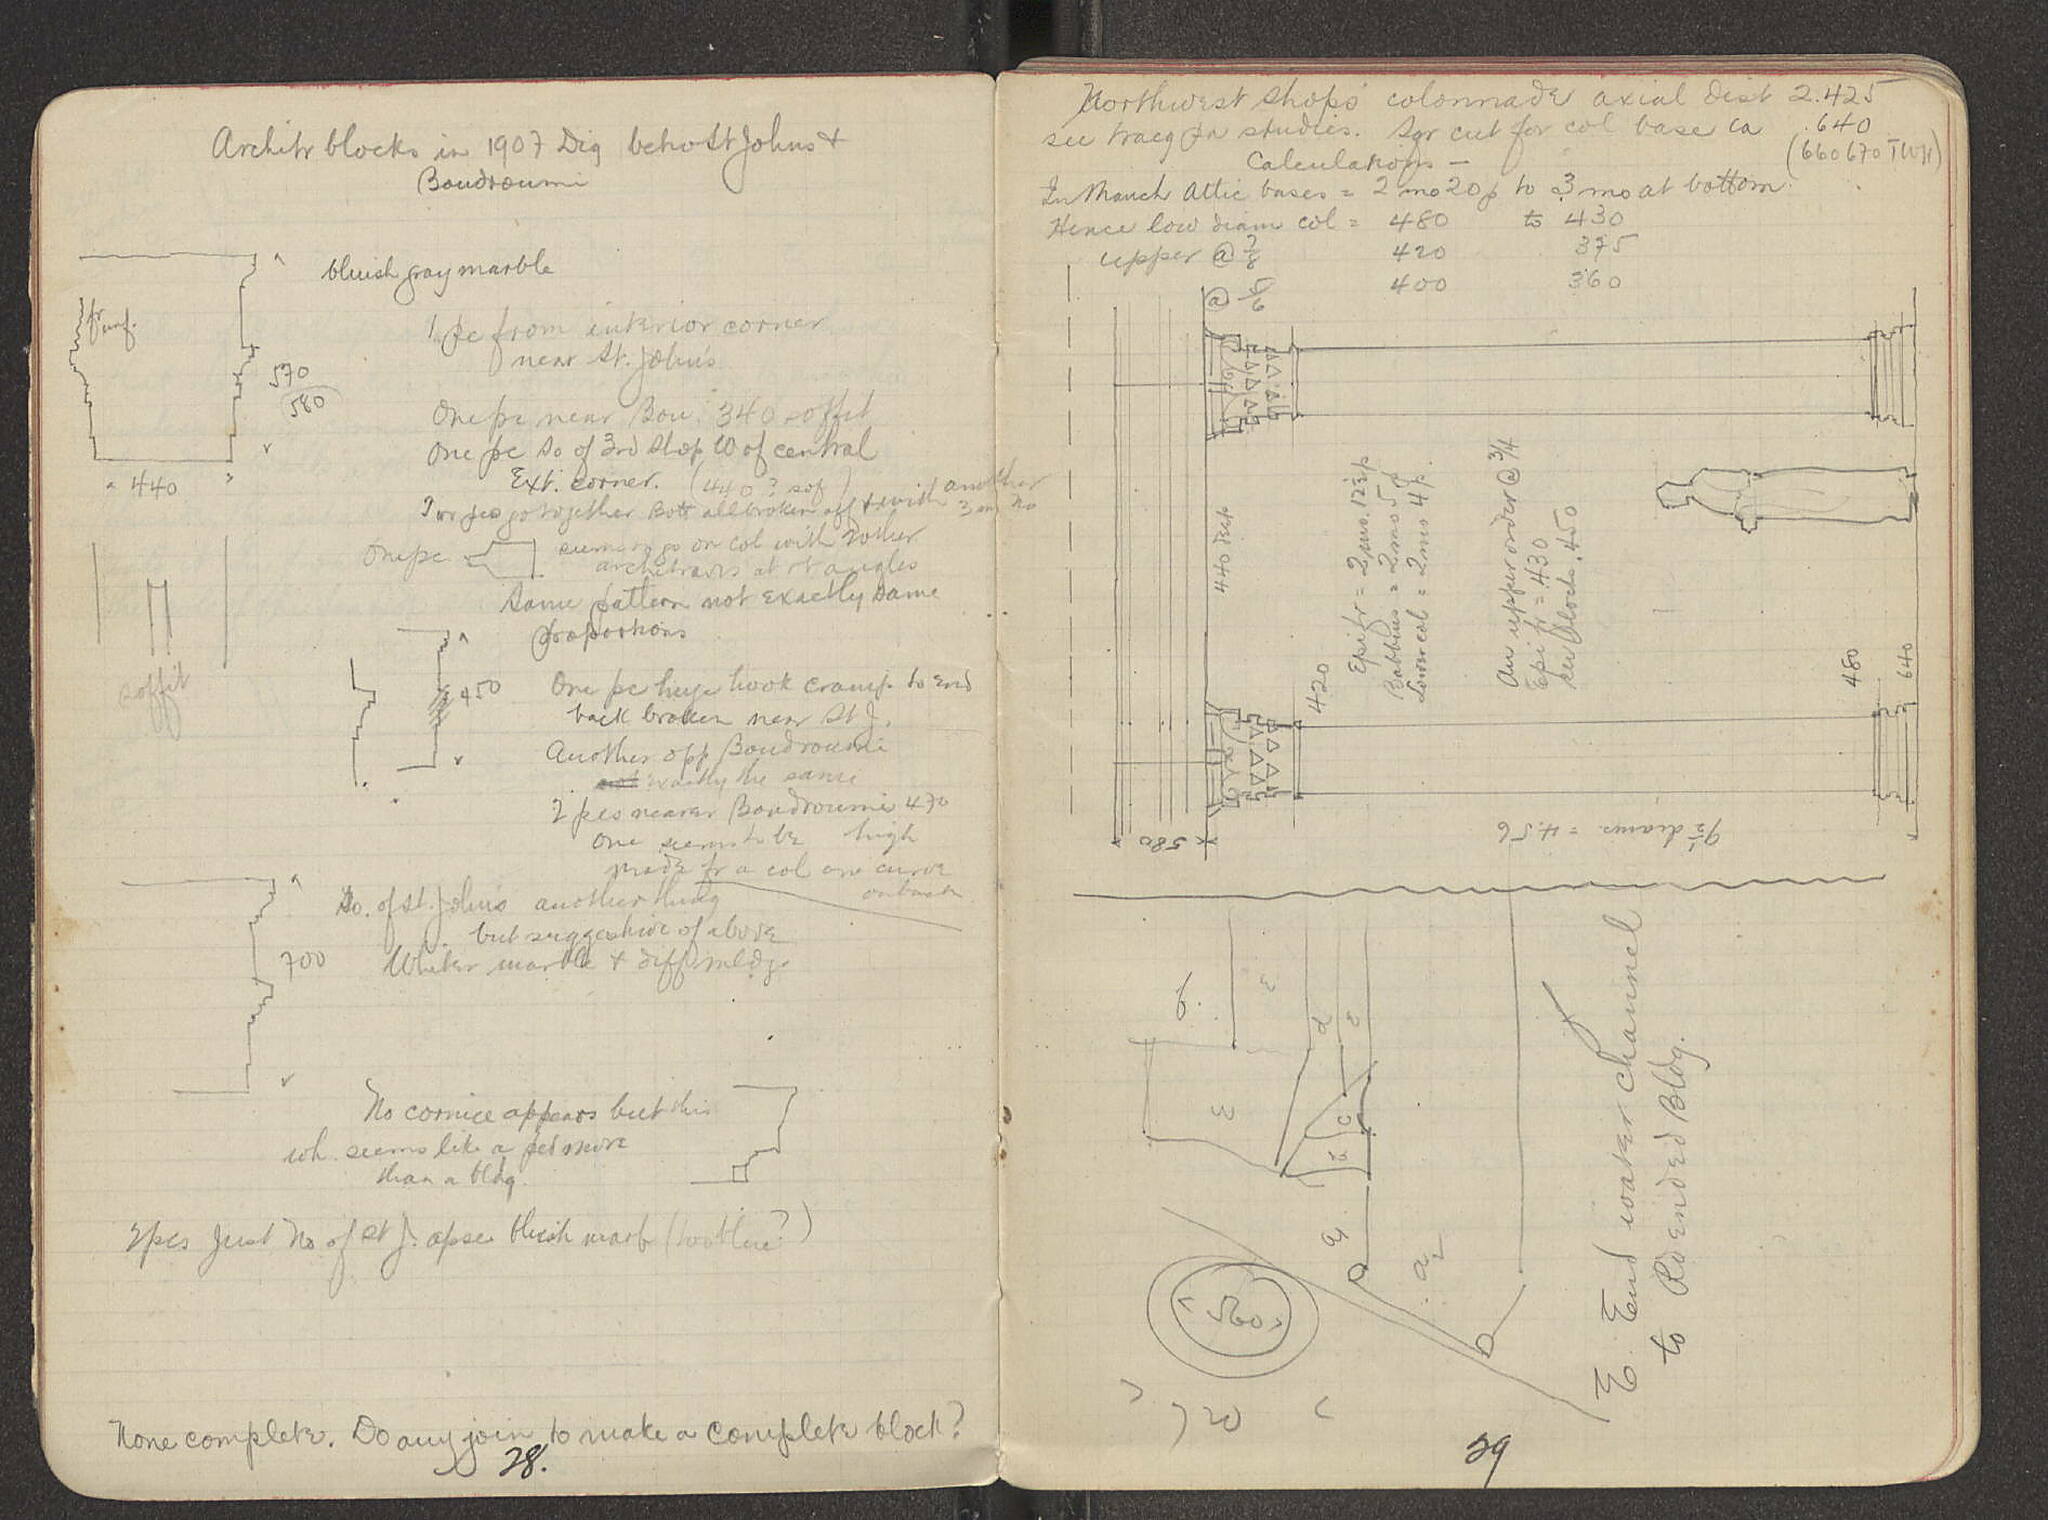 Architr blocks in 1907 Dig betw St Johns +
Boudroumi
bluish gray marble
unf.
1 pc from interior corner
near St. John's
570
(580)
One pc near Bou. 340 soffit
One pc So of 3rd Shop W of central
Ext. corner. (440? sof)
440
Two pcs go together Bott all broken off + with another
3 m no
One pc
seems to go on col with 2 other
architraves at rt angles
Same pattern not exactly same
proportions
soffit
450
One pc huge hook cramp to end
back broken near St J.
Another opp Boudroumi
exactly the same
2 pcs nearer Boudroumi 470
one seems to be high
made fr a col one curve
on back
So. of St. John's another thing
but suggestive of above
700
Whiter marble + diff mldg.
No cornice appears but this
wh. seems like a ped more
than a bldg.
2 pcs Just No of St J. apse bluish marb (too blue?)
None complete. Do any join to make a complete block?
28.
Northwest Shops colonnade axial dist 2.425
see studies. Sqr cut for col base ca .640
(660 670 )
Calculations —
In Mauch Attic bases = 2 mo 20 p to 3 mo at bottom.
Hence low diam col = 480 to 430
upper @ 7/8 420 375
@ 5/6 400 360
440 deep
420
Epi fr = 2 mo. 12½ p
Babbius = 2 mo 5 p
Lower col = 2 mo 4 p.
An upper order @ 3/4
Epi fr = .430
rev blocks .450
480
640
580
9½ diams. = 4.56
b.
ε
d
c
ε
c
b
a1
a2
560
720
E. End water channel
to Rdended Bldg.
29